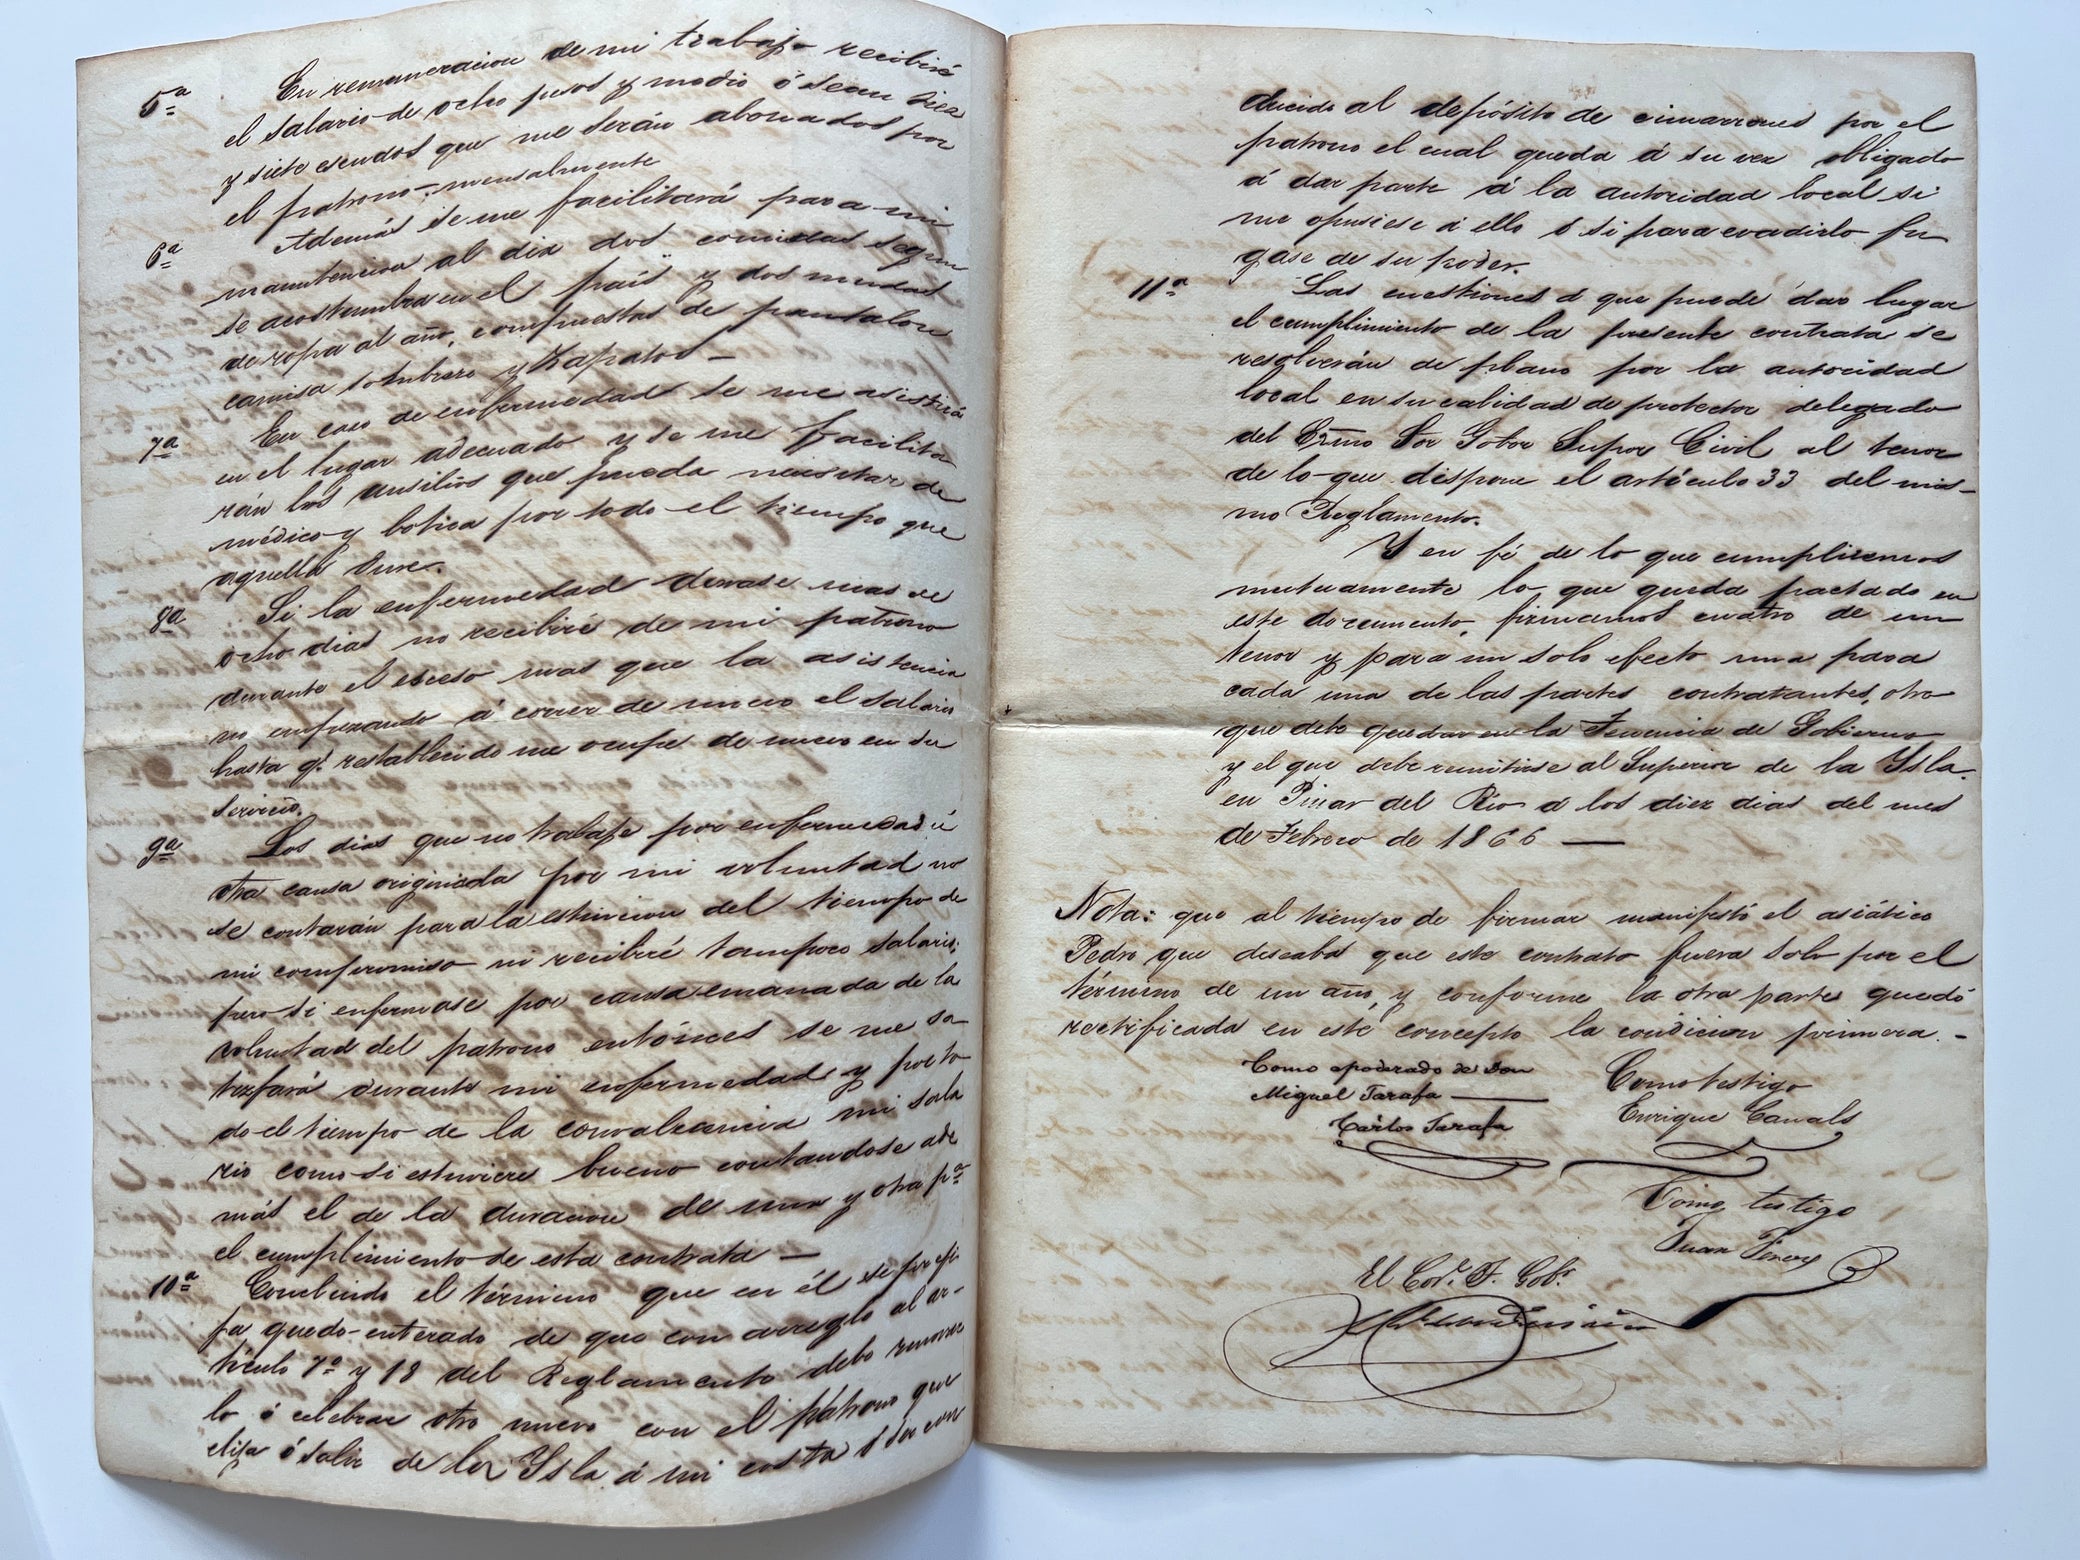 5ª En remuneracion de mi trabajo recibiré
el salario de ocho pesos y medio ó sean diez
y siete escudos que me serán abonados por
el patrono mensualmente
6ª Además se me facilitará para mi
manutencion al dia dos comidas segun
se acostumbra en el país y dos mudas
de ropa al año, compuestas de pantalon
camisa sombrero y zapatos —
7ª En caso de enfermedad se me asistirá
en el lugar adecuado y se me facilita
rán los ausilios que pueda necesitar de
médico y botica por todo el tiempo que
aquella dure.
8ª Si la enfermedad durase mas de
ocho dias no recibiré de mi patrono
durante el esceso mas que la asistencia
no empezando á correr de nuevo el salario
hasta q.e restablecido me ocupe de nuevo en su
servicio.
9ª Los dias que no trabaje por enfermedad ú
otra causa originada por mi voluntad no
se contarán para la estincion del tiempo de
mi compromiso ni recibiré tampoco salario;
pero si enfermase por causa emanada de la
voluntad del patrono entónces se me sa
tisfará durante mi enfermedad y por to
do el tiempo de la convalecencia mi sala
rio como si estuviere bueno contandose ade
más el de la duracion de una y otra p.a
el cumplimiento de esta contrata —
10ª Concluido el término que en él se prefi
fa quedo enterado de que con arreglo al ar-
tículo 7º y 18 del Reglamento debo renovar
lo ó celebrar otro nuevo con el patrono que
elija ó salir de la Ysla á mi costa ó ser con
ducido al depósito de cimarrones por el
patrono el cual queda á su vez obligado
á dar parte á la autoridad local si
me opusiese á ello ó si para evadirlo fu
gase de su poder.
11ª Las cuestiones á que puede dar lugar
el cumplimiento de la presente contrata se
resolverán de plano por la autoridad
local en su calidad de protector delegado
del Ecmo Sor Gobor Supor Civil al tenor
de lo que dispone el artículo 33 del mis-
mo Reglamento.
Y en fé de lo que cumpliremos
mutuamente lo que queda pactado en
este documento, firmamos cuatro de un
tenor y para un solo efecto una para
cada una de las partes contratantes, otro
que debe quedar en la Tenencia de Gobierno
y el que debe remitirse al Superior de la Ysla.
en Pinar del Rio á los diez dias del mes
de Febrero de 1866 —
Nota: que al tiempo de firmar manifestó el asiático
Pedro que deseaba que este contrato fuera solo por el
término de un año, y conforme la otra parte quedó
rectificada en este concepto la condicion primera. -
Como apoderado de Don
Miguel Tarafa —
Cárlos Tarafa
Como testigo
Enrique Canals
Como testigo
Juan Perez
El Cor.l T. Gob.r